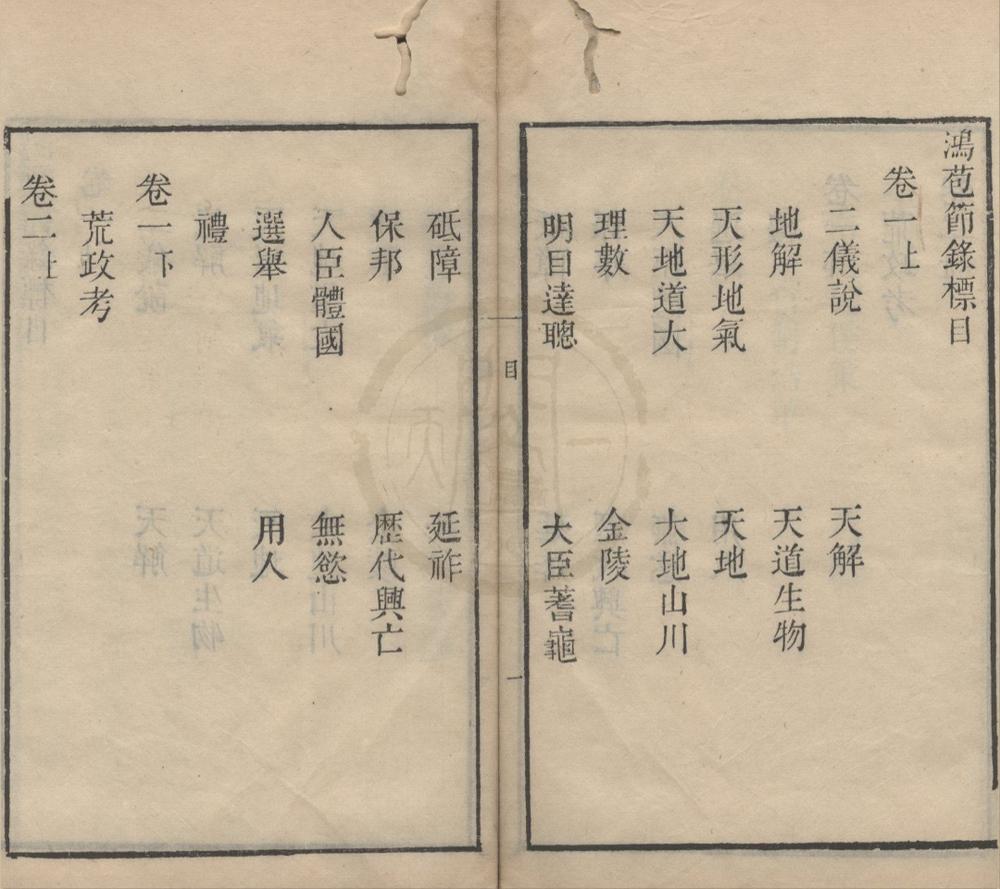 鴻苞節錄標目
卷一上
二儀說　天解
地解　天道生物
天形地氣　天地
天地道大　大地山川
理數　金陵
明目達聰　大臣蓍龜
目　一
砥障　延祚
保邦　歷代興亡
人臣體國　無慾
選舉　用人
禮
卷一下
荒政考
卷二上